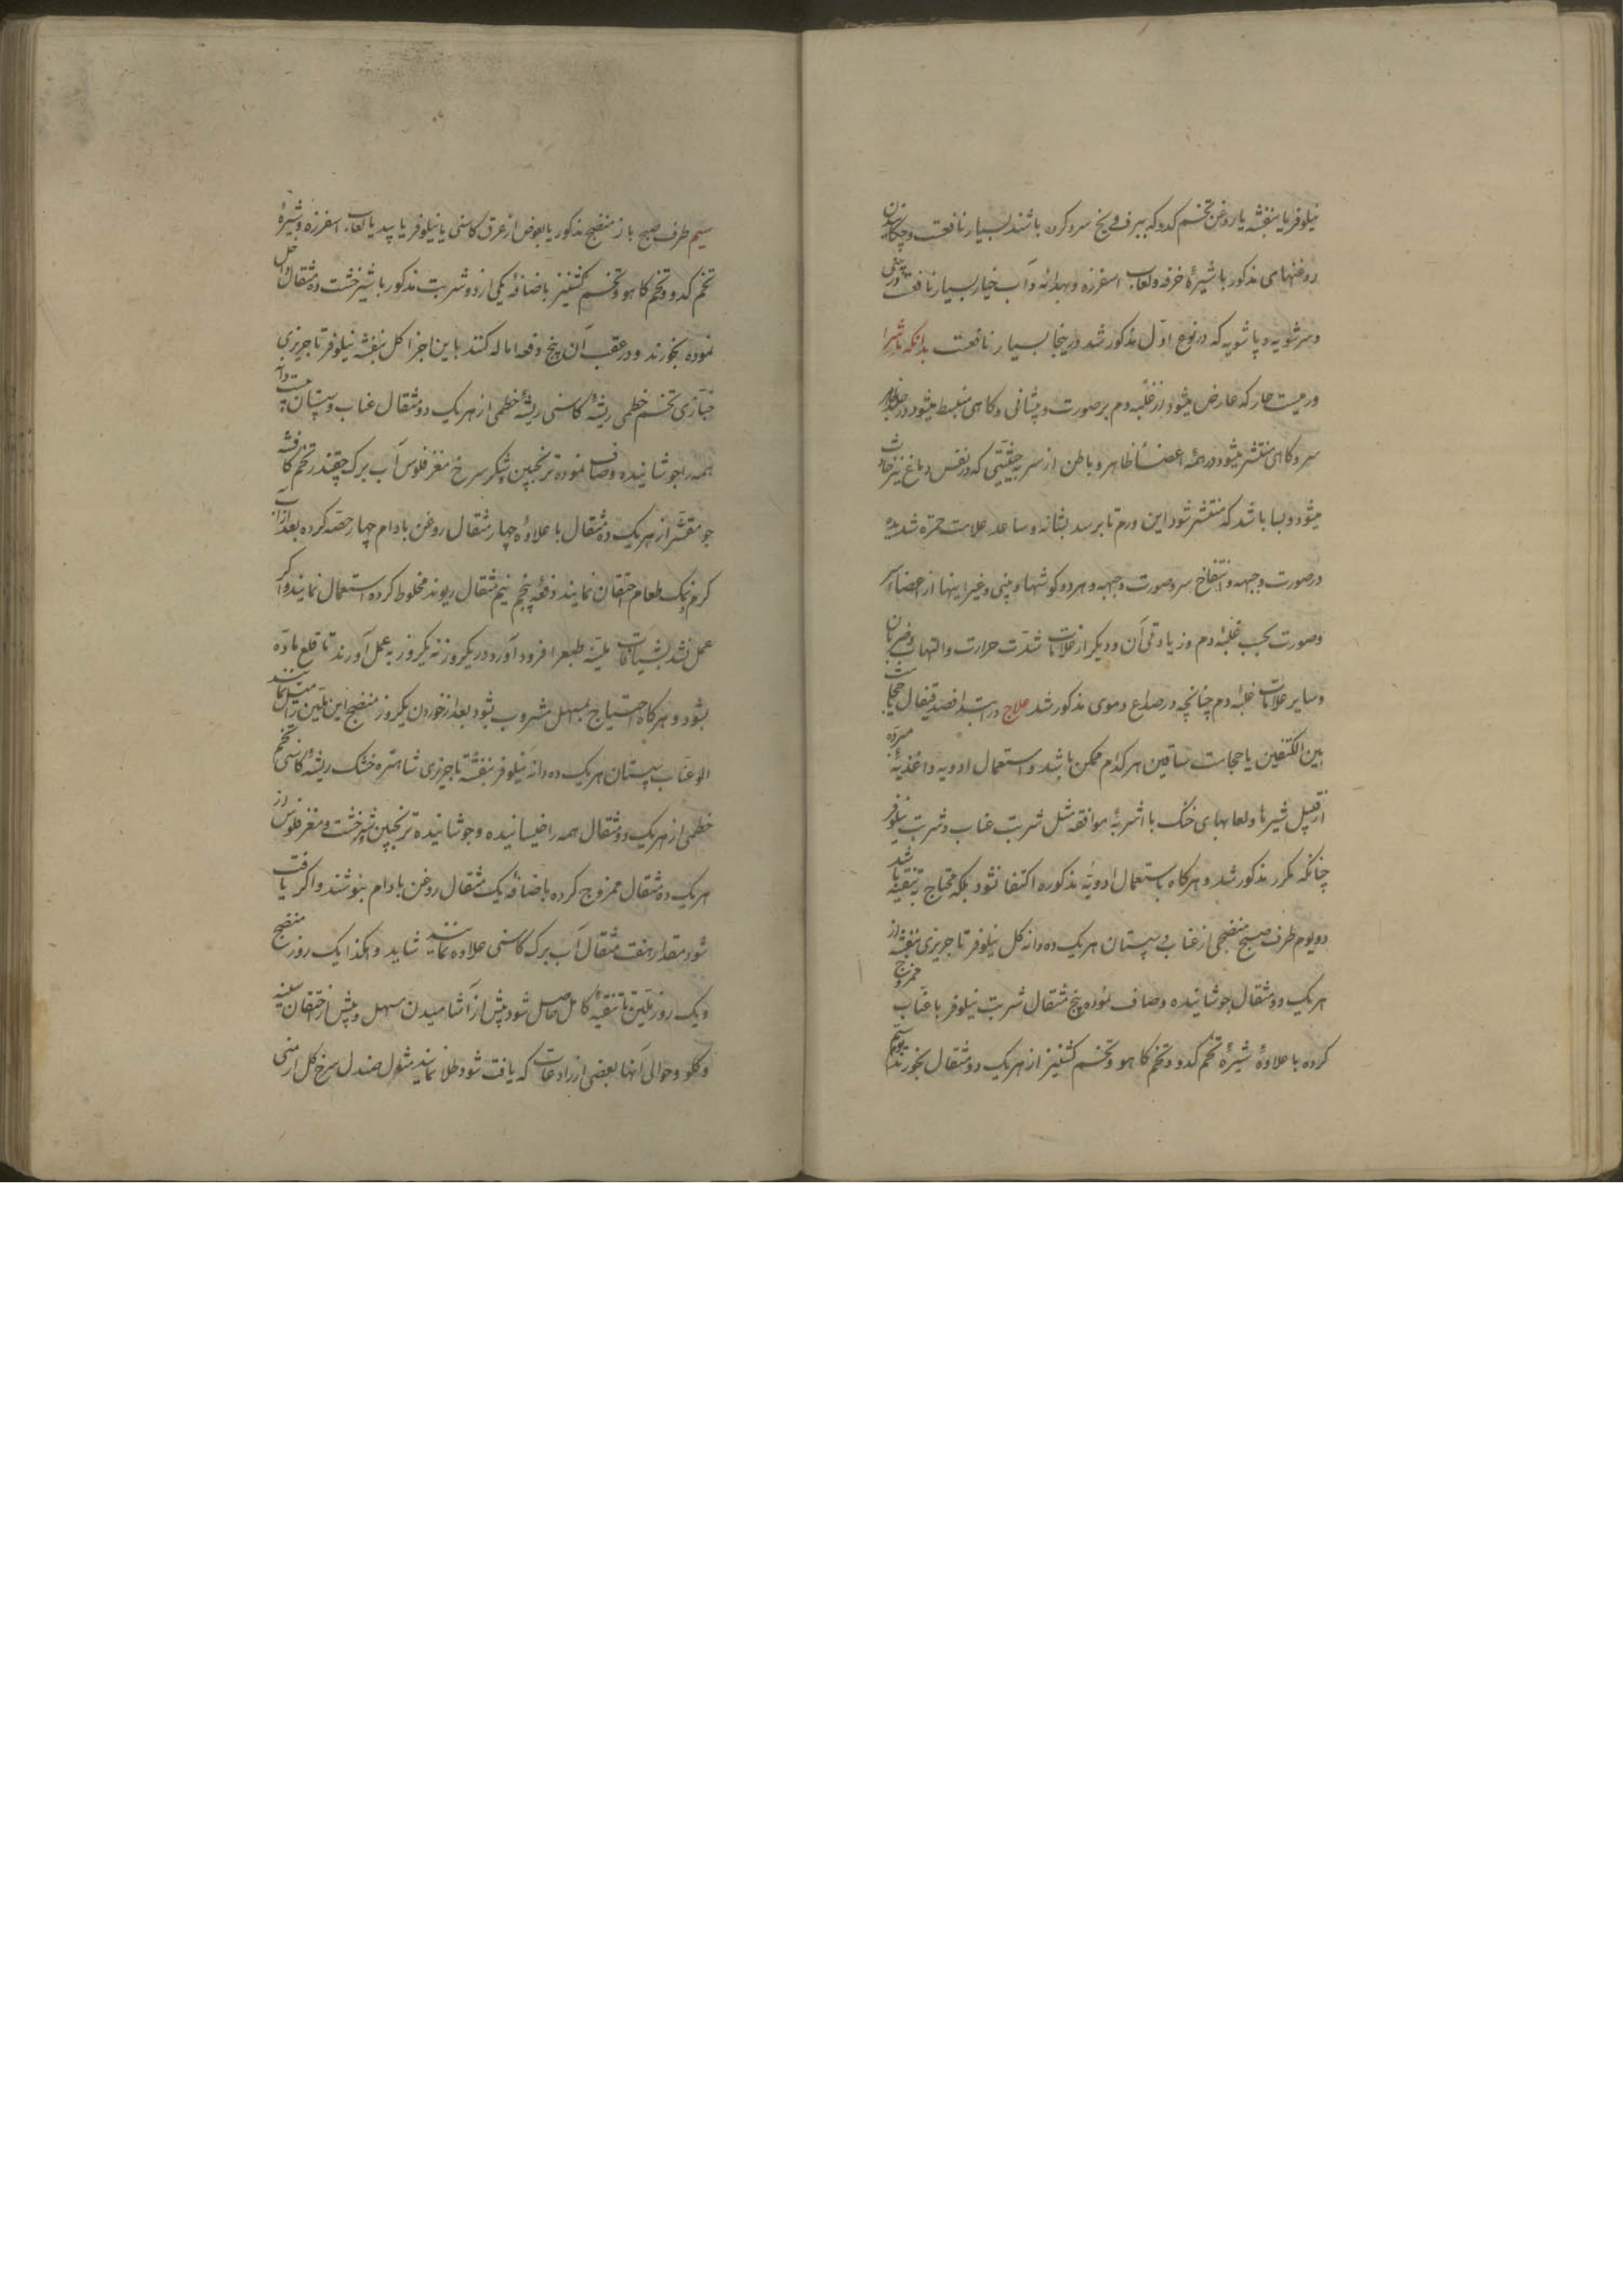 نیلوفر یا بنفشه یا روغن تخم کدو که ببرف و یخ سرد کرده باشند بسیار نافعست و چکانیدن
روغنهای مذکور با شیرهٔ خرفه و لعاب اسفرزه و بهدانه و آب خیار بسیار نافعست در بینی
و سرشویه و پاشویه که در نوع اول مذکور شد در ینجا بسیار نافعست بدانکه ماشرا
ورمیست حار که عارض میشود از غلبه دم بر صورت و پیشانی و کاهی منبسط میشود در جلد
سر و کاهی منتشر میشود در همه اعضا ظاهر و باطن از سر بحیثیتی که در نفس دماغ نیز حادث
میشود و بسا باشد که منتشر شود این ورم تا برسد بشانه و ساعد علامت حمرة شدیده
در صورت و جبهه و انتفاخ سر و صورت و جبهه و هر دو کوشها و بینی و غیر اینها از اعضاء سر
و صورت بحسب غلبه دم و زیادتی آن و دیکر از علامات شدت حرارت و التهاب و ضربان
و سایر علامات غلبه دم چنانچه در صداع دموی مذکور شد علاج در ابتدا فصد قیفال یا حجامت
بین الکتفین یا حجامت ساقین هر کدام ممکن باشد و استعمال ادویه و اغذیهٔ مبرده
از قبیل شیرها و لعابهای خنک با اشربهٔ موافقه مثل شربت عناب و شربت نیلوفر
چنانکه مکرر مذکور شد و هرکاه باستعمال ادویهٔ مذکوره اکتفا نشود بلکه محتاج بتنقیه باشد
دویوم طرف صبح منضجی از عناب و سپستان هر یک ده دانه کل نیلوفر تاجریزی بنفشه از
هر یک دو مثقال جوشانیده و صاف نموده پنج مثقال شربت نیلوفر یا عناب ممزوج
کرده با علاوهٔ شیرهٔ تخم کدو و تخم کاهو و تخم کشنیز از هر یک دو مثقال بخورند یوم
سیم طرف صبح باز منضج مذکور یا بعوض از عرق کاسنی یا نیلوفر یا بید یا لعاب اسفرزه و شیرهٔ
تخم کدو و تخم کاهو و تخم کشنیز باضافه یکی از دو شربت مذکور با شیرخشت ده مثقال داخل
نموده بخورند و در عقب آن پنج دفعه اماله کنند باین اجزا کل بنفشه نیلوفر تاجریزی
خبازی تخم خطمی ریشهٔ کاسنی ریشهٔ خطمی از هر یک دو مثقال عناب و سپستان بیست دانه
همه را جوشانیده و صاف نموده ترنجبین شکر سرخ مغز فلوس آب برک چقندر تخم کافشه
جو مقشر از هر یک ده مثقال با علاوهٔ چهار مثقال روغن بادام چهار حصه کرده بعد از آن
کرم نمک طعام احتقان نمایند دفعه پنجم نیم مثقال ریوند مخلوط کرده استعمال نمایند و اکر
عمل نشد بشیافات ملینه طبع را فرود آورد در یکروز نه یکروز به عمل آورند تا قلع ماده
بشود و هرکاه احتیاج بمسهل مشروب بشود بعد از خوردن یکروز منضج این ملین را میل نمایند
آلو عناب سپستان هر یک ده دانه نیلوفر بنفشه تاجریزی شاهتره خشک ریشهٔ کاسنی تخم
خطمی از هر یک دو مثقال همه را خیسانیده و جوشانیده ترنجبین شیرخشت و مغز فلوس از
هر یک ده مثقال ممزوج کرده باضافه یک مثقال روغن بادام بنوشند و اکر یافت
شود مقدار هفت مثقال آب برک کاسنی علاوه نمایند شاید و هکذا یک روز منضج
و یک روز ملین تا تنقیهٔ کامل حاصل شود و پیش از آشامیدن مسهل و پیش از احتقان سینه
و کلو و حوالی آنها بعضی از رادعات که یافت شود طلا نمایند مثل صندل سرخ کل ارمنی